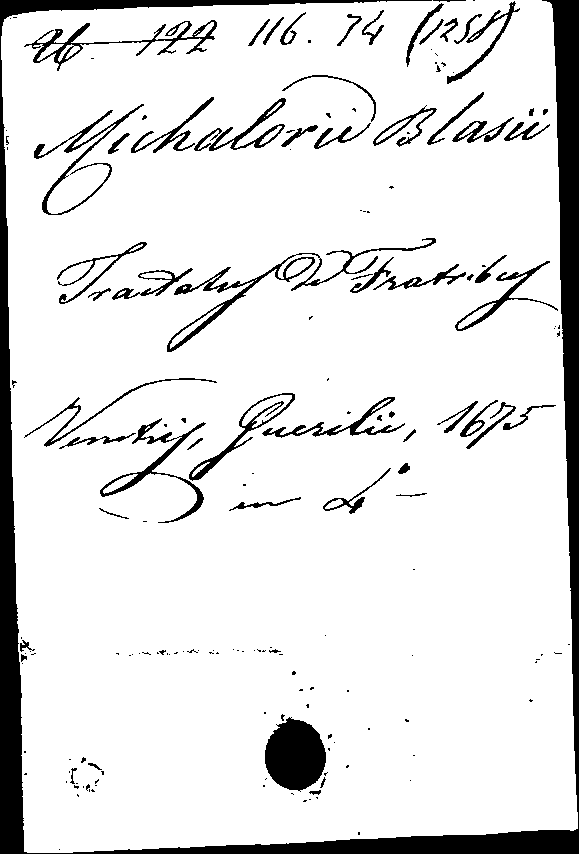 26. 122 116. 74 (1258)
Michalorii Blasii
Tractatus De Fratribus
Venetijs, Guerilii, 1675
in 4°